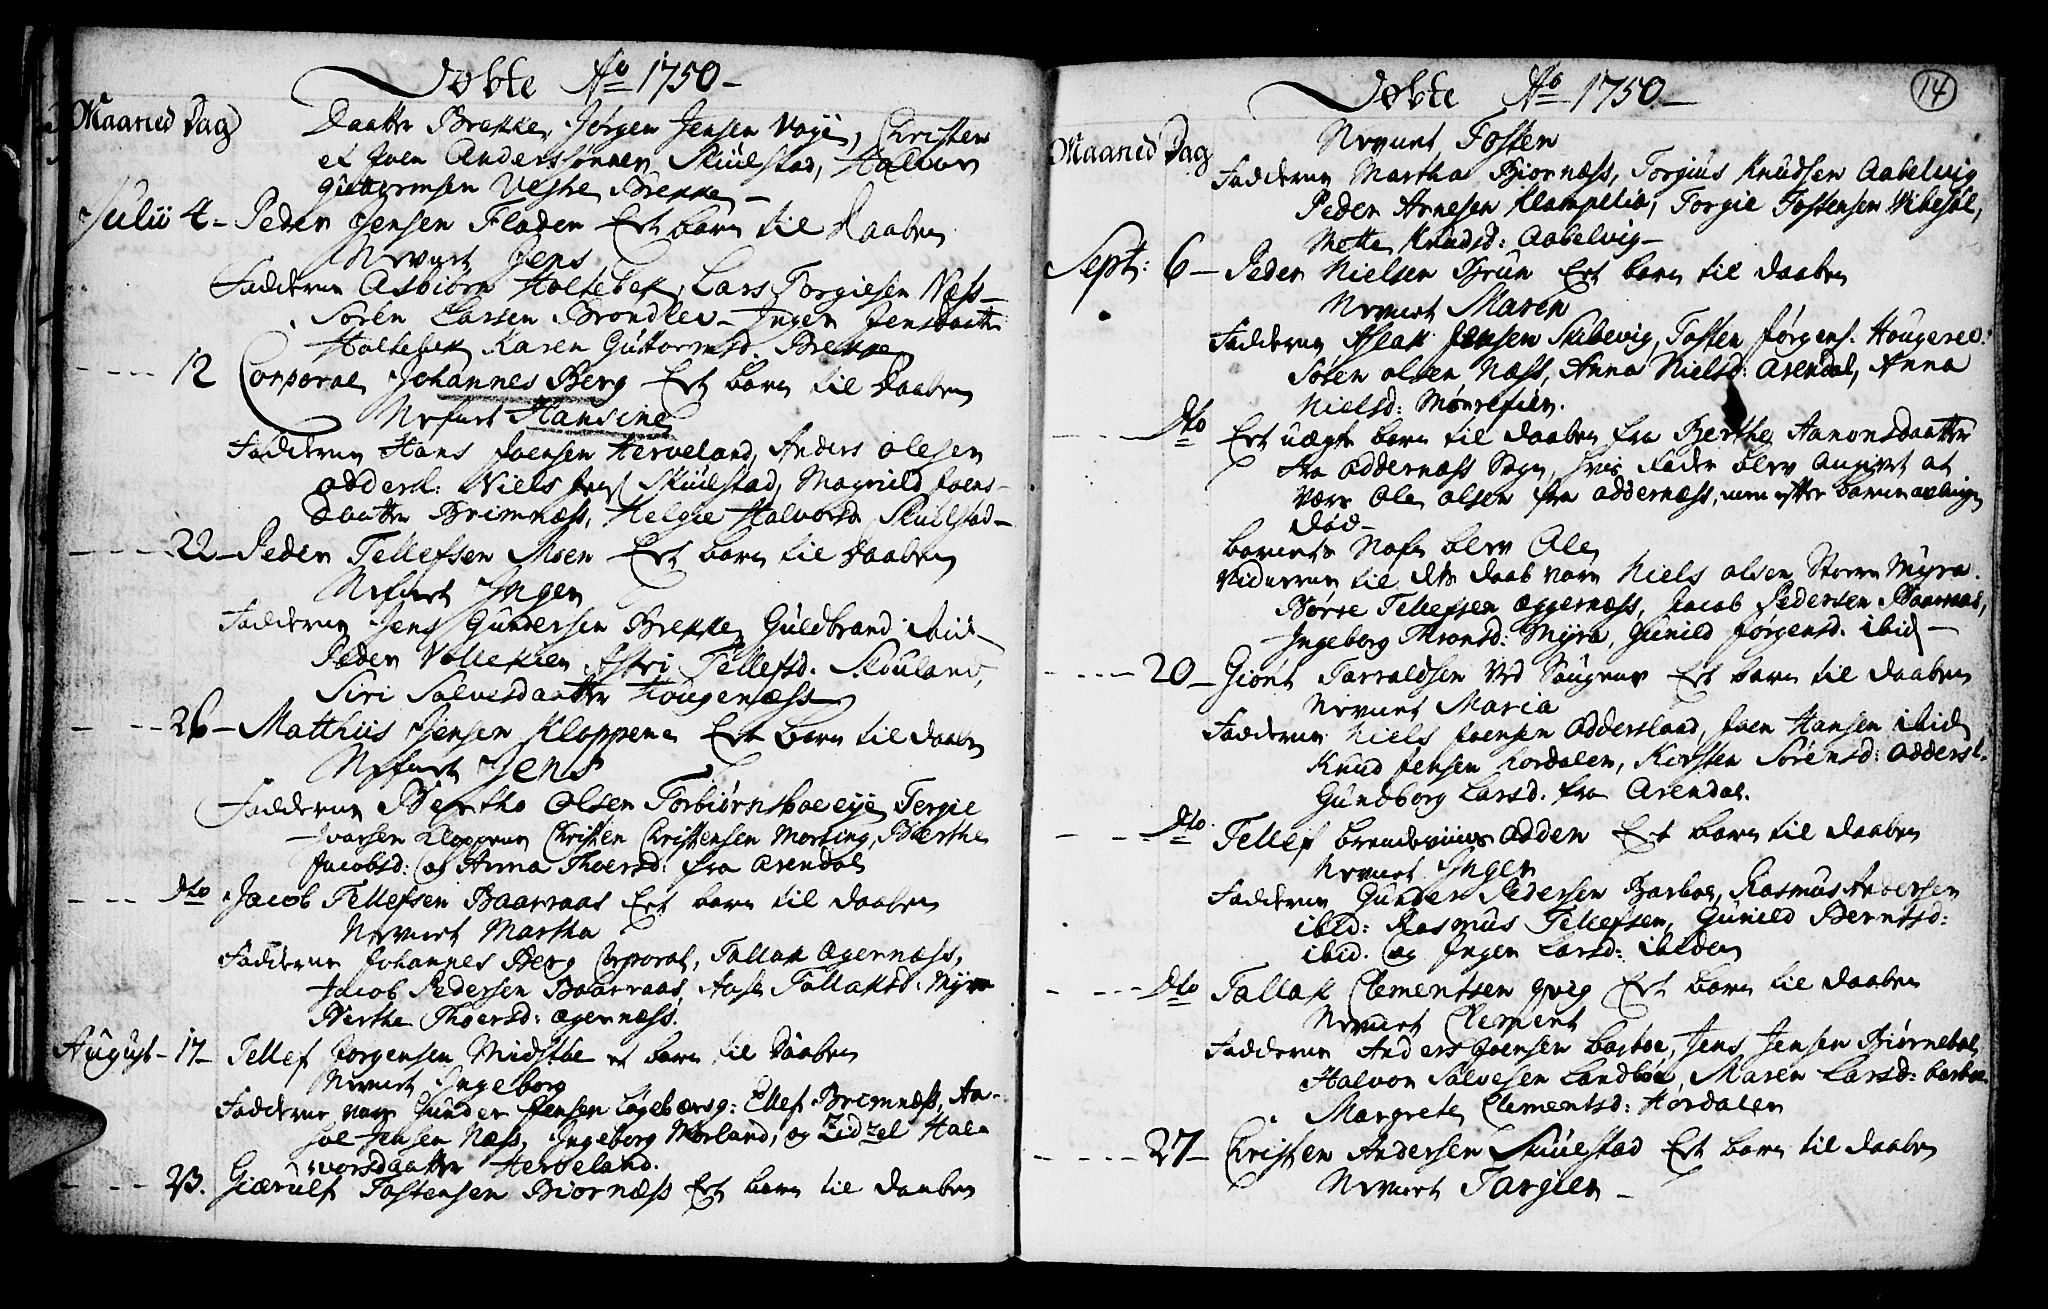 Døbte Ao 1750
Maaned Dag
Daatter Brekke, Jørgen Jensen Vaye, Christen
et Joen Anderssønner Skiulestad, Halvor
Guttormsen Vestre Brekke
Julii 4 - Peder Jensen Fladen Et barn til Daaben
Nevnt Jens
Fadderne Asbiørn Holtebek, Lars Torgiesen Næss
Søren Larsen Brondlev - Inger Jensdaatter
Holtebek Karen Guttormsd. Brekke
12 Corporal Johannes Berg Et barn til Daaben
Nefnt Hansine
Fadderne Hans Joensen Herveland, Anders Olesen
Addersl: Niels Jens Skiulestad, Magnild Joens-
Daatter Brimnæss, Helgie Halvorsd Skiulstad
22 - Peder Tellefsen Moen Et barn til Daaben
Nefnt Inger
Fadderne Jens Gundersen Brekke, Guldbrand ibid
Peder Vollekien Astri Tellefsd. Skouland,
Siri Salvesdaatter Hougenæss
26 - Matthis Jensen Kloppene Et barn til daaben
Nefnt Jens
Fadderne Bertho Olsen Torbiørnsboe eye, Tergie
Ivarsen Kloppene Christen Christensen Morling, Berthe
Jacobsd: og Anna Thoersd: fra Arendal
Dto Jacob Tellefsen Baarraas Et barn til daaben
Nevnet Martha
Fadderne Johannes Berg Corporal, Tallak Agernæss,
Jacob Pedersen Baarraas, Aase Tallaksd. Myra
Berthe Thoersd: Agernæss.
August - 17 - Tellef Jorgensen Midstøe et barn til Daaben
Nevnt Ingeborg
Fadderne vare Gunder Jensen Løgebærsg: Ellef Brimnæss, Aa-
sol Jensen Næss, Ingeborg Morland, og Zidzel Hal-
vorsdaatter Herveland.
23. Giærulf Tostensen Biornæss Et barn til daaben
14
Døbte Ao 1750
Maaned Dag
Nevnet Tosten
Fadderne Martha Biornæss, Torgius Knudsen Aabelvig
Peder Arnesen Klampelia, Torgie Tostensen Vibestøl,
Mette Knudsd: Aabelvig
Sept: 6 - Peder Nielsen Brun Et barn til daaben
Nevnet Maren
Fadderne Aslak Jensen Skibevig, Tosten Jørgens. Hougered:
Søren olsen Næss, Anna Nielsd: Arendal, Anna
Nielsd: Mørrefier.
Dto Et uægte barn til daaben fra Berthe Aanonsdaatter
fra Oddernæss Sogn, hvis Fader blev angivet at
være Ole olsen fra Oddernæss, men efter barnets
død
barnets Nafn blev Ole
Vidnerne til dets daab vare Niels olsen Store Myra.
Børre Tellefsen Aggernæss, Jacob Pedersen Baarraas,
Ingeborg Thronsd: Myra, Gunild Jørgensd. ibid
20 - Giont Tarraldsen ved Saugene Et barn til daaben
Nevnet Maria
Fadderne Niels Joensen Addersland, Joen Hansen ibid
Knud Jensen Hordalen, Kirsten Sørensd: Addersl.
Gundborg Larsd. fra Arendal.
Dto Tellef brendeviins Odden Et barn til daaben
Nevnet Inger
Fadderne Gunder Pedersen Barboe, Rasmus Andersen
ibid: Rasmus Tellefsen, Gunild Berntsd:
ibid. og Inger Larsd: ibidem
Dto Tallak Clementsen qvig Et barn til daaben
Nevnet Clement
Fadderne Anders Joensen Barboe, Jens Jensen Biørneboe
Halvor Salvesen Landbøe, Maren Larsd: barboe.
Margrete Clementsd: Hordalen
27 - Christen Andersen Skiulestad Et barn til daaben
Nevnet Targier